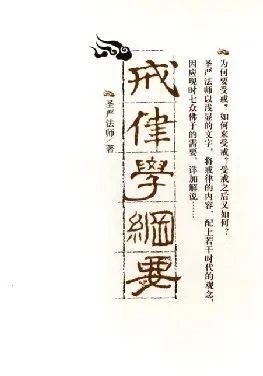 为何要受戒？如何来受戒？受戒之后又如何？
圣严法师以浅显的文字，将戒律的内容，配上若干时代的观念，
因应现时七众佛子的需要，详加解说……
戒律学纲要
圣严法师／著